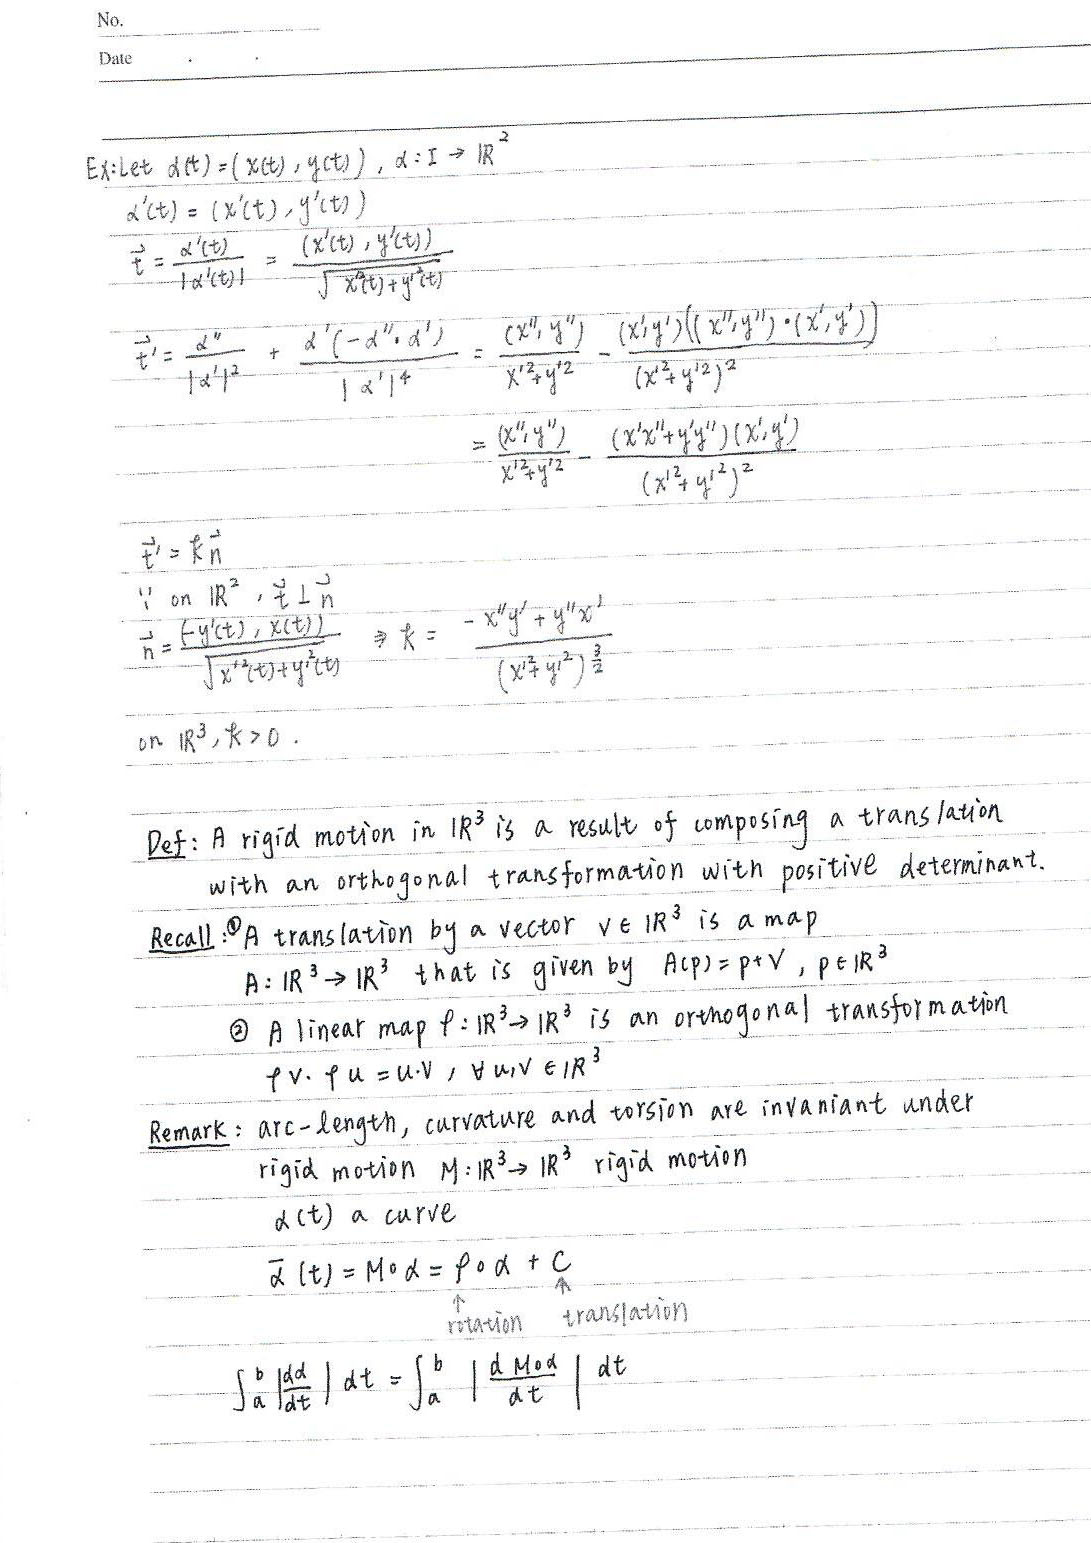 No.
Date . .
Ex: Let α(t) = (x(t), y(t)), α: I → ℝ²
α'(t) = (x'(t), y'(t))
t⃗ = α'(t) / |α'(t)| = (x'(t), y'(t)) / √(x'²(t) + y'²(t))
t⃗' = α'' / |α'|² + α'(-α''·α') / |α'|⁴ = (x'', y'') / (x'² + y'²) - (x', y')((x'', y'')·(x', y')) / (x'² + y'²)²
= (x'', y'') / (x'² + y'²) - (x'x'' + y'y'')(x', y') / (x'² + y'²)²
t⃗' = k n⃗
∵ on ℝ², t⃗ ⊥ n⃗
n⃗ = (-y'(t), x(t)) / √(x'²(t) + y'²(t)) ⇒ k = (-x''y' + y''x') / (x'² + y'²)^(3/2)
on ℝ³, k > 0.
Def: A rigid motion in ℝ³ is a result of composing a translation
with an orthogonal transformation with positive determinant.
Recall: ① A translation by a vector v ∈ ℝ³ is a map
A: ℝ³ → ℝ³ that is given by A(p) = p + v, p ∈ ℝ³
② A linear map ρ: ℝ³ → ℝ³ is an orthogonal transformation
ρv · ρu = u·v, ∀ u, v ∈ ℝ³
Remark: arc-length, curvature and torsion are invaniant under
rigid motion M: ℝ³ → ℝ³ rigid motion
α(t) a curve
ᾱ(t) = M∘α = ρ∘α + C
↑ rotation ↑ translation
∫ₐᵇ |dα/dt| dt = ∫ₐᵇ |d M∘α / dt| dt